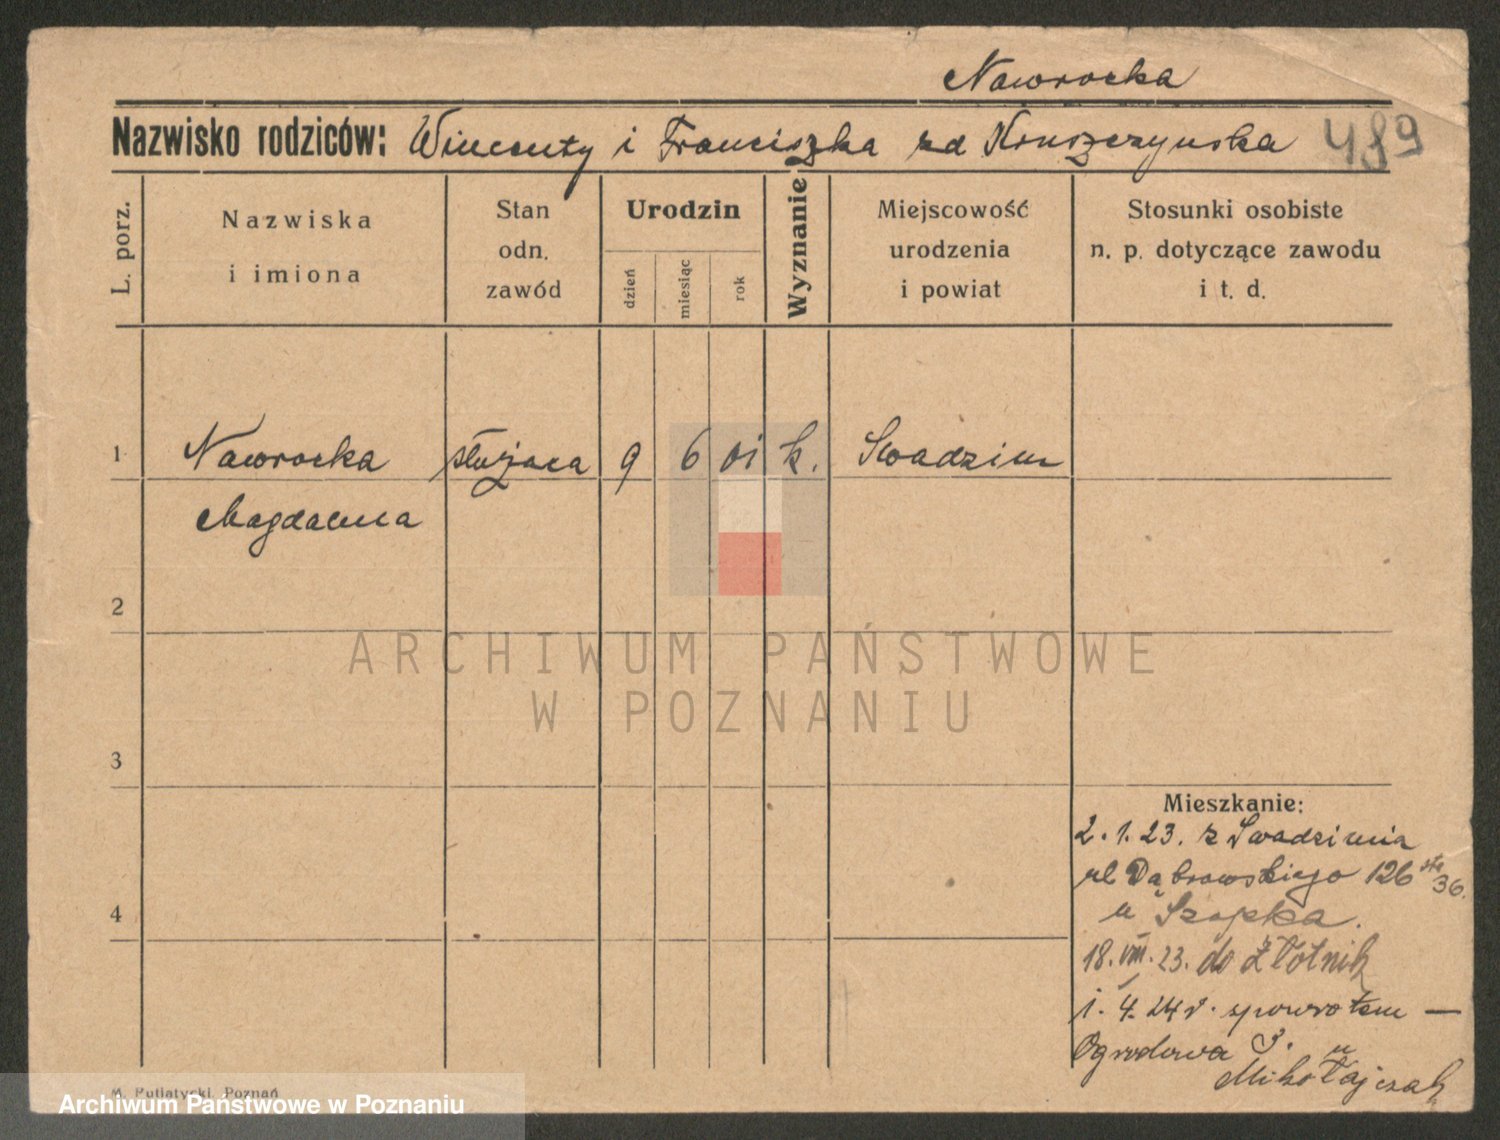 Nawrocka
Nazwisko rodziców: Wincenty i Franciszka zd Konszczynska 489
L. porz.
Nazwiska
i imiona
Stan
odn.
zawód
Urodzin
dzień
miesiąc
rok
Wyznanie
Miejscowość
urodzenia
i powiat
Stosunki osobiste
n. p. dotyczące zawodu
i t. d.
1 Nawrocka służąca 9 6 01 k. Swadzim
Magdalena
2
ARCHIWUM PAŃSTWOWE
W POZNANIU
3
Mieszkanie:
2.1.23. z Swadzimia
ul Dąbrowskiego 126 36.
u Szopka.
4
18.VIII.23. do Złotnik
1.4.24 r. spowrotem —
Ogrodowa 3. u
Mikołajczak
M. Putiatycki, Poznań
Archiwum Państwowe w Poznaniu